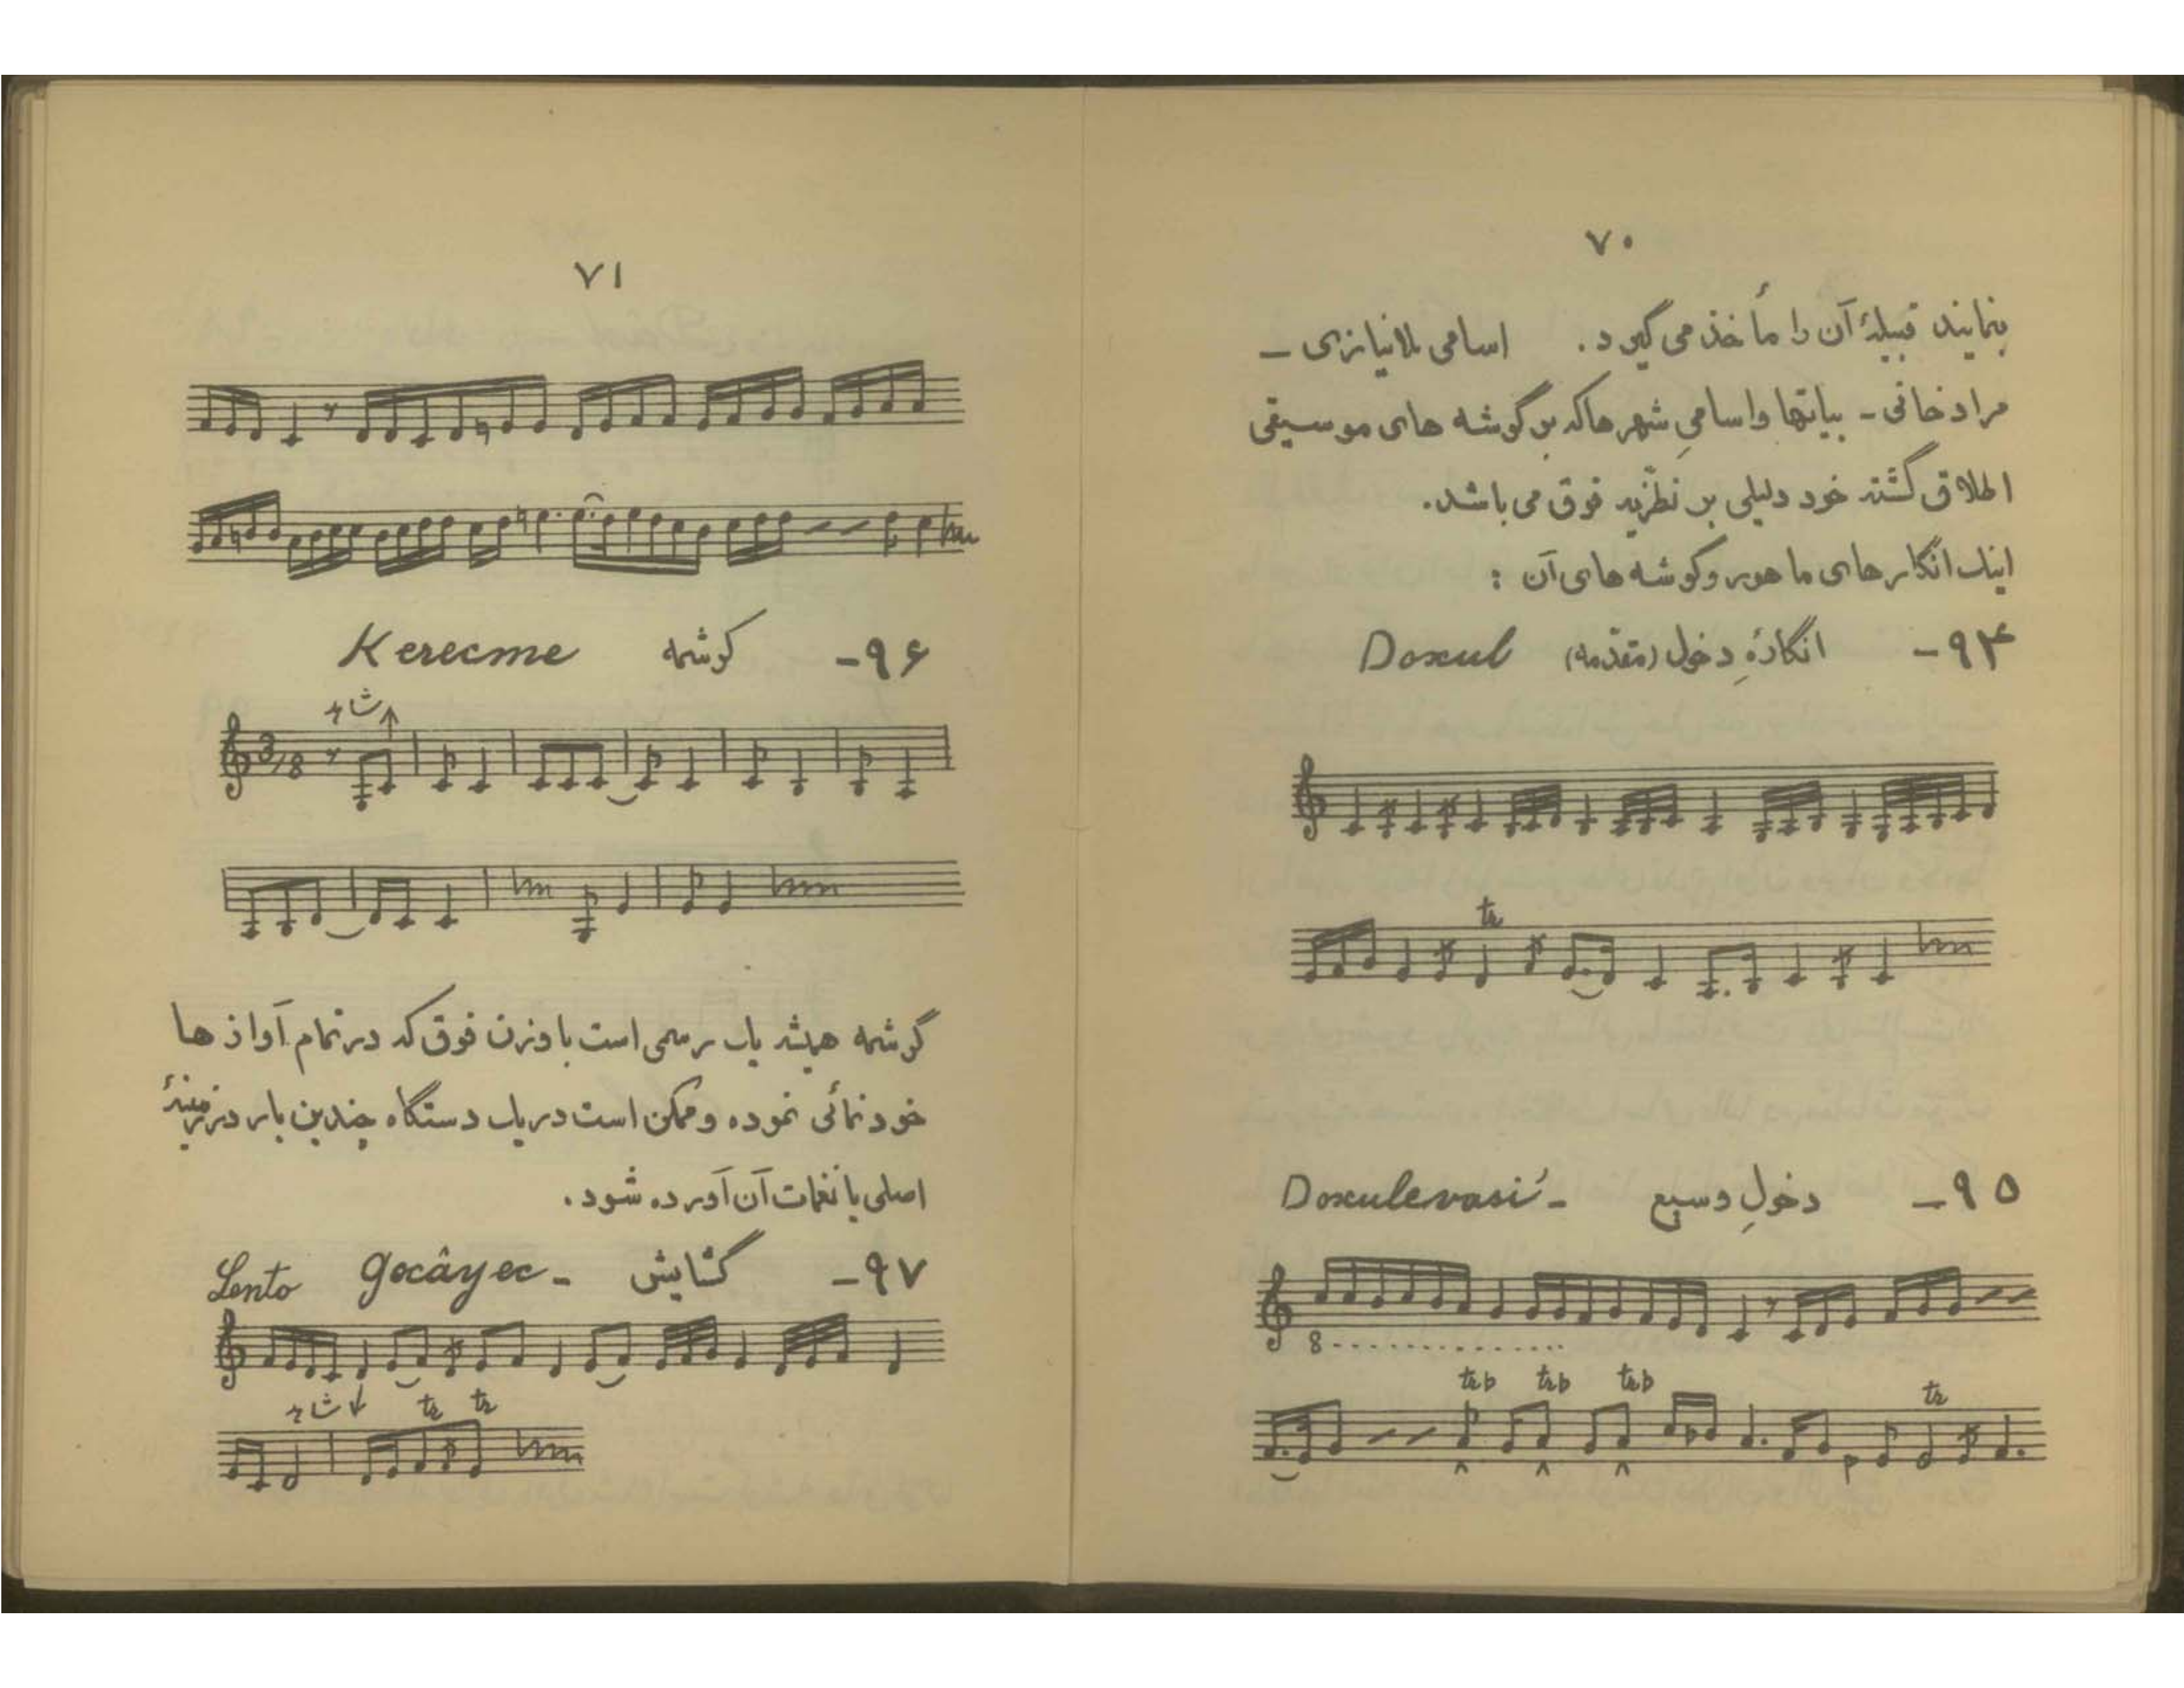 ۷۰
بنمایند قبیلهٔ آن را مأخذ می گیرد. اسامی بلانیازی –
مراد خانی - بیاتها و اسامیِ شهرها که بر گوشه های موسیقی
اطلاق گشته خود دلیلی بر نظرّیه فوق می باشد.
اینک انگارهای ماهور و گوشه های آن :
۹۴- انگارُهِ دخول (مقدّمه) Doxul
tr
۹۵- دخولِ وسیع - Doxulevasi'
8
trb trb trb tr
۷۱
۹۶- کرشمه Kerecme
3/8
کرشمه همیشه یک رسمی است با وزن فوق که در تمام آواز ها
خودنمائی نموده و ممکن است در یک دستگاه چندین بار در زمینهٔ
اصلی با نغمات آن آورده شود.
۹۷- گشایش - Gocâyec Lento
tr tr